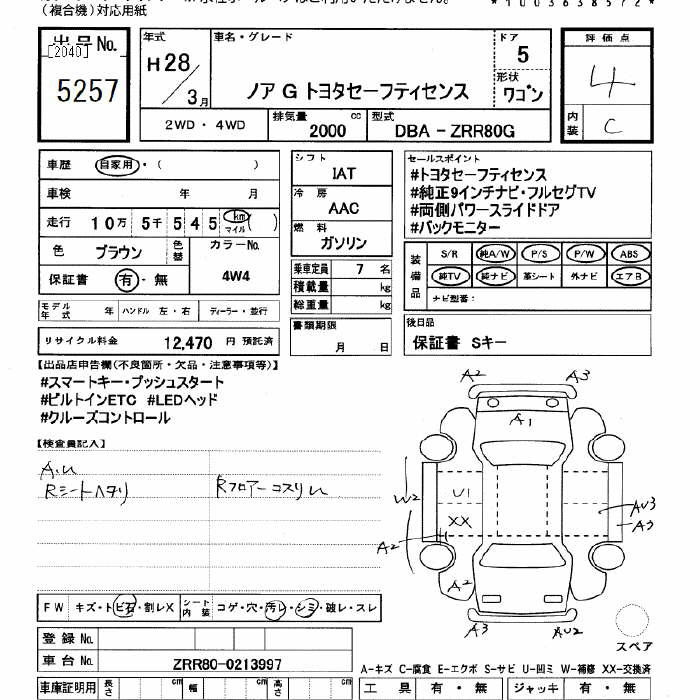 (複合機)対応用紙
*1003638572*
出品No.
[2040]
5257
年式
H28/3月
車名・グレード
ノア G トヨタセーフティセンス
ドア
5
形状
ワゴン
2WD・4WD
排気量
2000 cc
型式
DBA-ZRR80G
評価点
4
内装
C
車歴 自家用・( )
車検 年 月
走行 10万 5千 5 4 5 km マイル ( )
色 ブラウン 色替 カラーNo.
4W4
保証書 有・無
モデル年式 年 ハンドル 左・右 ディーラー・並行
リサイクル料金 12,470 円 預託済
シフト
IAT
冷房
AAC
燃料
ガソリン
乗車定員 7 名
積載量 kg
総重量 kg
書類期限
月 日
セールスポイント
#トヨタセーフティセンス
#純正9インチナビ・フルセグTV
#両側パワースライドドア
#バックモニター
装備品
S/R 純A/W P/S P/W ABS
純TV 純ナビ 革シート 外ナビ エアB
ナビ型番:
後日品
保証書 Sキー
【出品店申告欄(不良箇所・欠品・注意事項等)】
#スマートキー・プッシュスタート
#ビルトインETC #LEDヘッド
#クルーズコントロール
【検査員記入】
A.U
Rシートヘタリ
Rフロアーコスリレ
A2 A3
A1
W2 U1
XX
AU3
A3
A2
A2
A3 AU2
スペア
FW キズ・トビ石・割レX シート内装 コゲ・穴・汚レ・シミ・破レ・スレ
登録 No.
車台 No. ZRR80-0213997
車庫証明用 長さ cm 幅 cm 高さ cm
A-キズ C-腐食 E-エクボ S-サビ U-凹ミ W-補修 XX-交換済
工具 有・無 ジャッキ 有・無